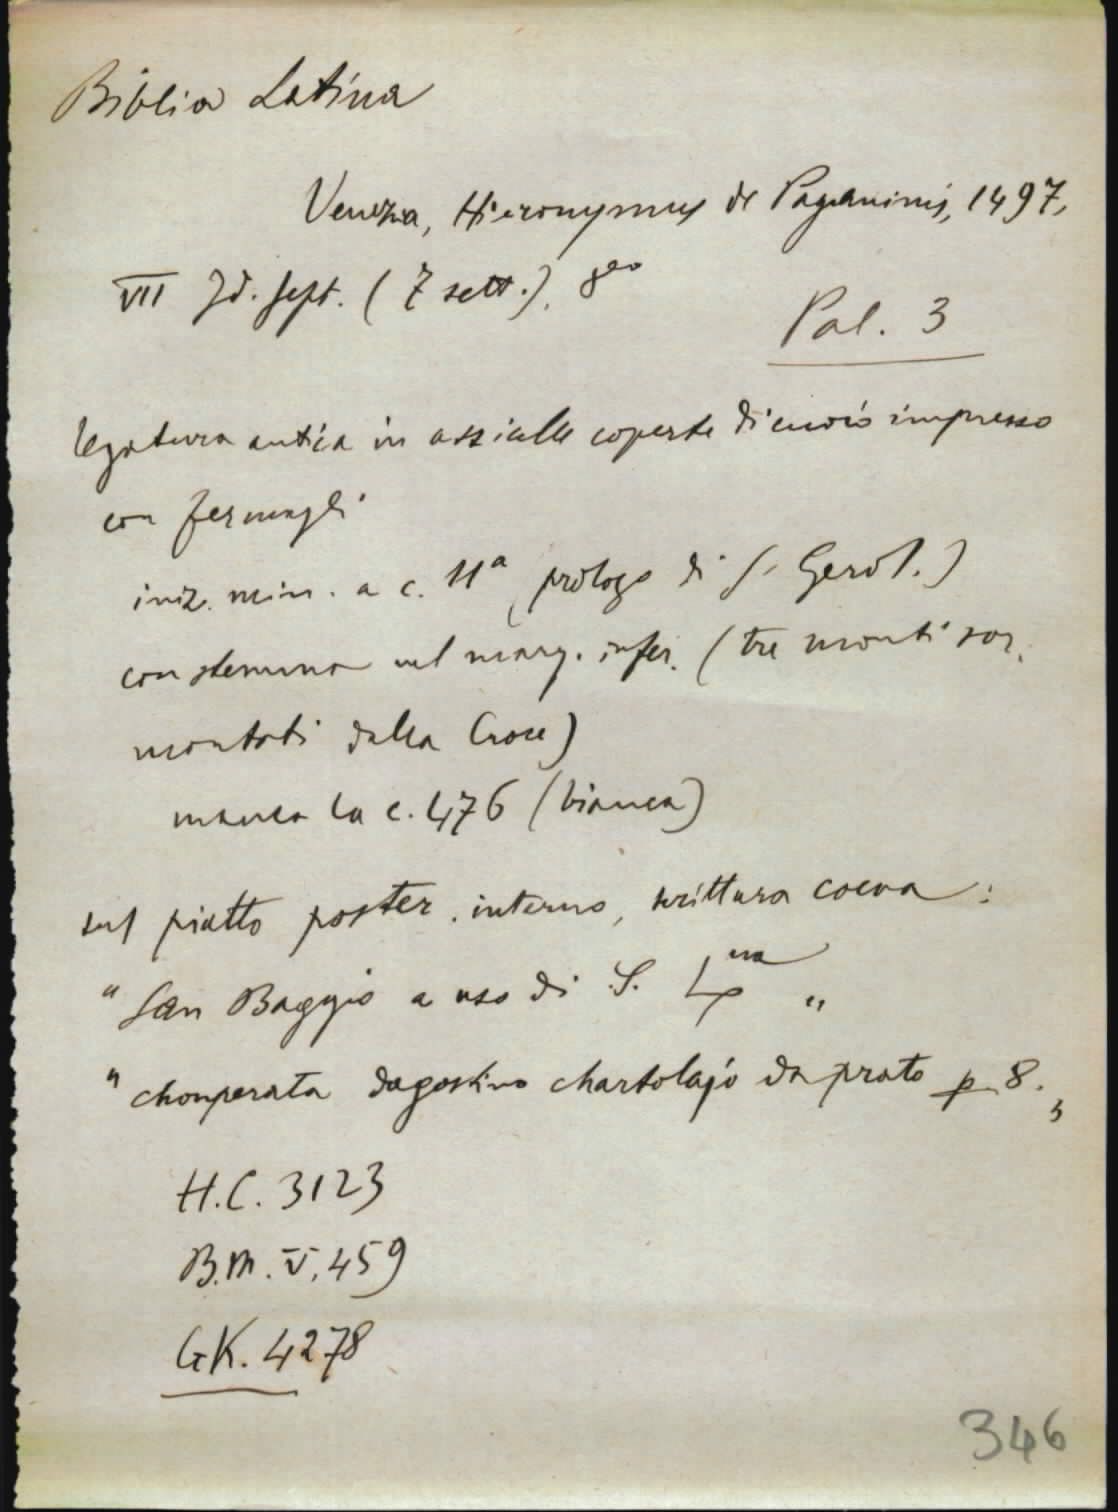 Biblia Latina
Venezia, Hieronymus de Paganinis, 1497,
VII Id. sept. (7 sett.). 8vo
Pal. 3
legatura antica in assicelle coperte di cuoio impresso
con fermagli
iniz. min. a c. 11a (prologo di S. Gerol.)
con stemma nel marg. infer. (tre monti sor.
montati dalla Croce)
manca la c. 476 (bianca)
sul piatto poster. interno, scrittura coeva:
"San Baggio a uso di S. "
"chonperata dagostino chartolajo da prato p 8.
H.C. 3123
B.M. V, 459
GK. 4278
346